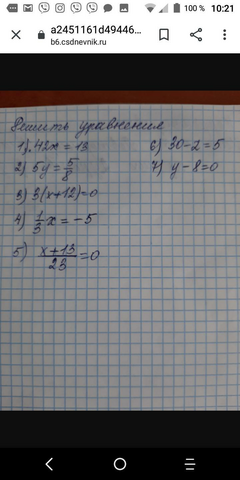 100 % 10:21
a2451161d49446...
b6.csdnevnik.ru
Решить уравнения
1) 42x = 13
2) 5y = 5/8
3) 3(x+12)=0
4) 1/3 x = -5
5) x+13/23 = 0
6) 30-2=5
7) y-8=0